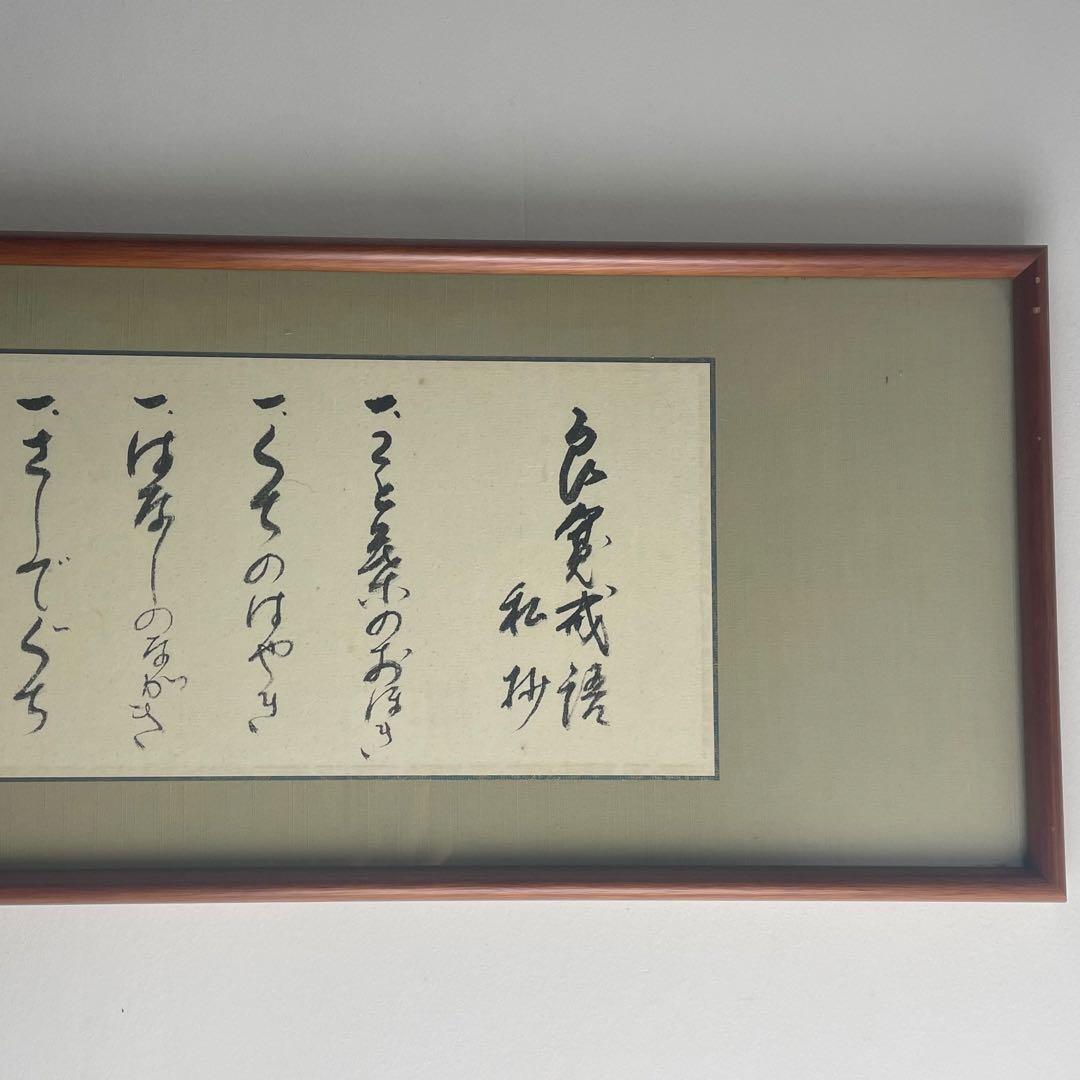 良寛戒語
私抄
一、こと葉のおほき
一、くちのはやき
一、はなしのながき
一、さしでぐち